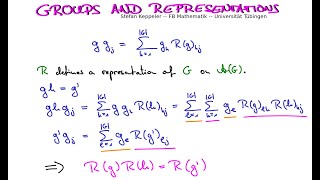 GROUPS AND REPRESENTATIONS
Stefan Keppeler -- FB Mathematik -- Universität Tübingen
g g_j = \sum_{k=1}^{|G|} g_k R(g)_{kj}
R defines a representation of G on A(G).
gh = g'
g h g_j = \sum_{k=1}^{|G|} g g_k R(h)_{kj} = \sum_{k=1}^{|G|} \sum_{l=1}^{|G|} g_l R(g)_{lk} R(h)_{kj}
g' g_j = \sum_{l=1}^{|G|} g_l R(g')_{lj}
⟹ R(g) R(h) = R(g')